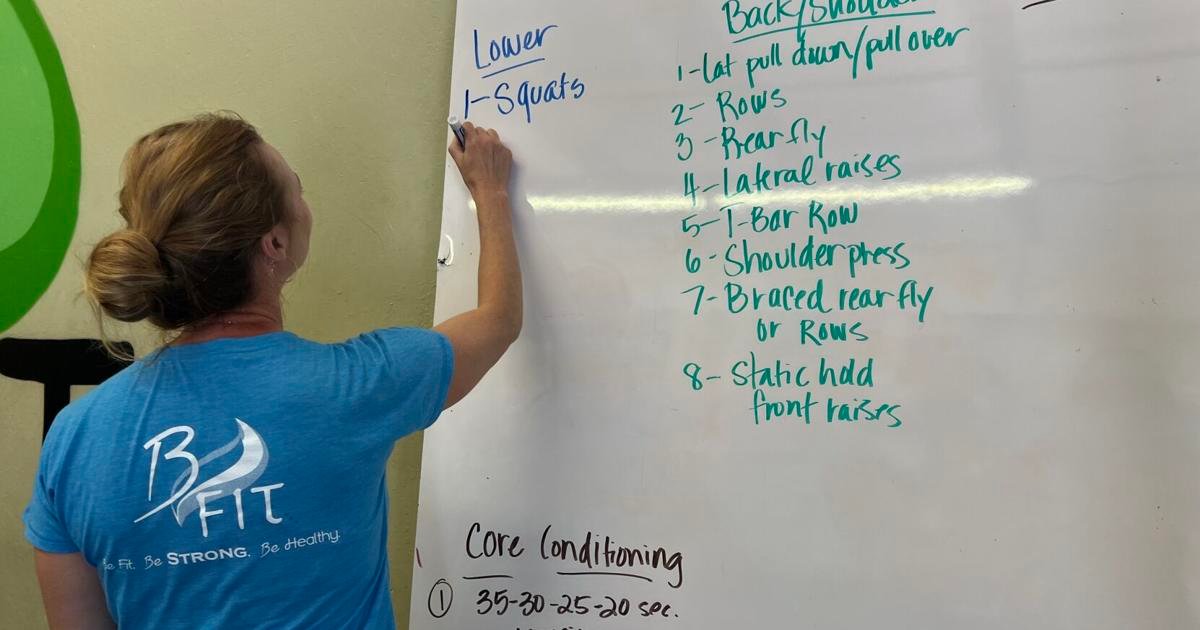 Lower
1-Squats
Back/Shoulder
1-Lat pull down/pull over
2- Rows
3-Rear fly
4-Lateral raises
5-T-Bar Row
6-Shoulder press
7-Braced rear fly
or Rows
8- Static hold
front raises
Core Conditioning
① 35-30-25-20 sec.
B FIT
Be Fit. Be STRONG. Be Healthy.